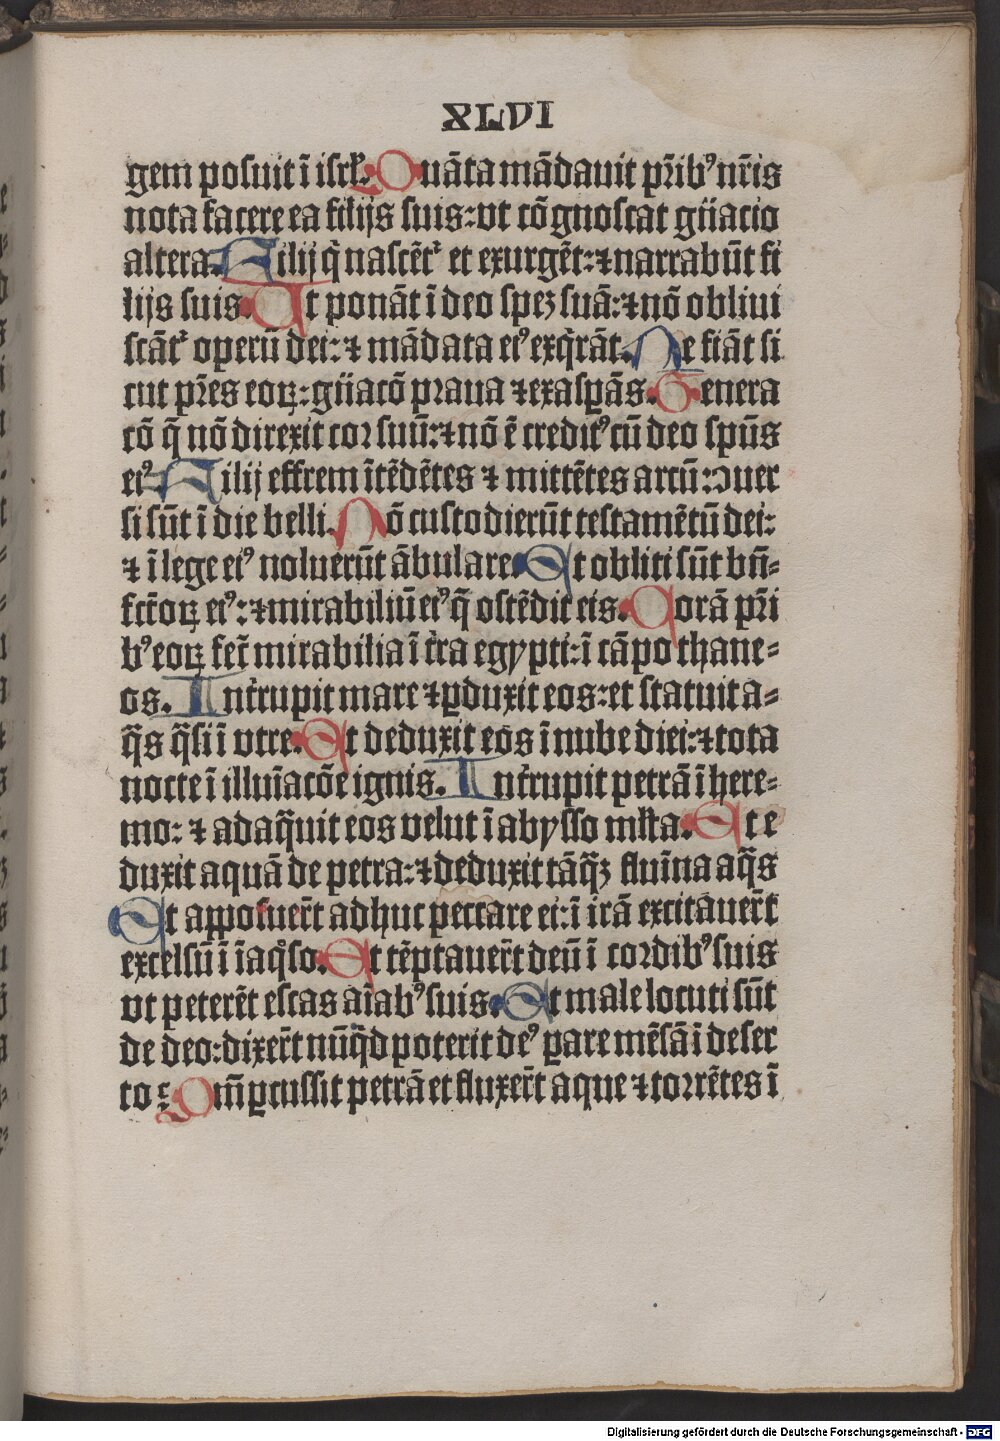 XLVI
gem posuit ī isrł. Quāta mādauit pr̄ibꝰ nr̄is
nota facere ea filijs suis: vt cōgnoscat gn̄acio
altera. Filij q̇ nascēt᷑ et exurgēt: ⁊ narrabūt fi
lijs suis. Vt ponāt ī deo spez suā: ⁊ nō obliui
scāt᷑ operū dei: ⁊ mādata eiꝰ exq̇rāt. Ne fiāt si
cut pr̄es eoꝝ: gn̄acō praua ⁊ exasꝑās. Genera
cō q̄ nō direxit cor suū: ⁊ nō ē creditꝰ cū deo spūs
eiꝰ Filij effrem ītēdētes ⁊ mittētes arcū: ɔuer
si sūt ī die belli. Nō custodierūt testamētū dei:
⁊ ī lege eiꝰ noluerūt ābulare. Et obliti sūt bn̄=
fctōꝝ eiꝰ: ⁊ mirabiliū eiꝰ q̄ ostēdit eis. Corā pr̄i
bꝰ eoꝝ fec̄ mirabilia ī tr̄a egypti: ī cāpo thane=
os. Int̄rupit mare ⁊ ꝑduxit eos: et statuit a=
q̄s q̄si ī vtre. Et deduxit eos ī nube diei: ⁊ tota
nocte ī illuīacōe ignis. Int̄rupit petrā ī here=
mo: ⁊ adaq̄uit eos velut ī abysso mlta. Et e
duxit aquā de petra: ⁊ deduxit tāq̄ꝫ fluīna aq̄s
Et apposuer̄t adhuc peccare ei: ī irā excitauer̄t
excelsū ī īaq̊so. Et tēptauer̄t deū ī cordibꝰ suis
vt peterēt escas aīabꝰ suis. Et male locuti sūt
de deo: dixer̄t nūq̇d poterit deꝰ ꝑare mēsā ī deser
to Qm̄ ꝑcussit petrā et fluxer̄t aque ⁊ torrētes ī
Digitalisierung gefördert durch die Deutsche Forschungsgemeinschaft - DFG